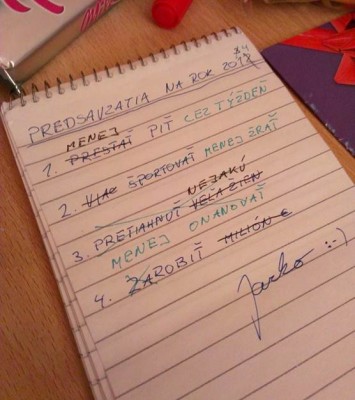 PREDSAVZATIA NA ROK 2014
MENEJ
1. PRESTAŤ PIŤ CEZ TÝŽDEŇ
2. VIAC ŠPORTOVAŤ MENEJ ŽRAŤ
NEJAKÚ
3. PRETIAHNUŤ VEĽA ŽIEN
MENEJ ONANOVAŤ
4. ZAROBIŤ MILIÓN €
Jarko :-)